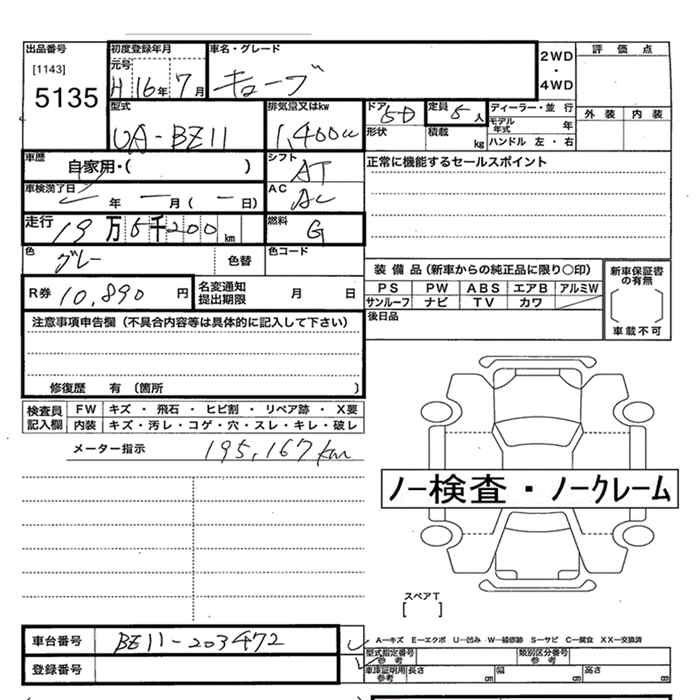 出品番号 初度登録年月 車名・グレード 2WD ・ 4WD 評価点
[1143] 元号
5135 H 16年 7月 キューブ
型式 排気量又はkw ドア 5D 定員 5人 ディーラー・並行 外装 内装
UA-BZ11 1,400cc 形状 積載 kg モデル年式 年
ハンドル 左・右
車歴 自家用・( ) シフト AT 正常に機能するセールスポイント
車検満了日 年 ー月( ー日) AC AC
走行 19万5千200km 燃料 G
色 グレー 色替 色コード
装備品(新車からの純正品に限り○印) 新車保証書の有無
R券 10,890円 名変通知提出期限 月 日 PS PW ABS エアB アルミW
サンルーフ ナビ TV カワ [ ]
注意事項申告欄(不具合内容等は具体的に記入して下さい) 後日品 車載不可
修復歴 有 〔箇所 〕
検査員記入欄 FW キズ・飛石・ヒビ割・リペア跡・X要
内装 キズ・汚レ・コゲ・穴・スレ・キレ・破レ
メーター指示 195,167km
ノー検査・ノークレーム
スペアT
[ ]
車台番号 BZ11-203472
A―キズ E―エクボ U―凹み W―補修跡 S―サビ C―腐食 XX―交換済
登録番号
型式指定番号 参考 類別区分番号 参考
車庫証明用 参考 長さ cm 幅 cm 高さ cm